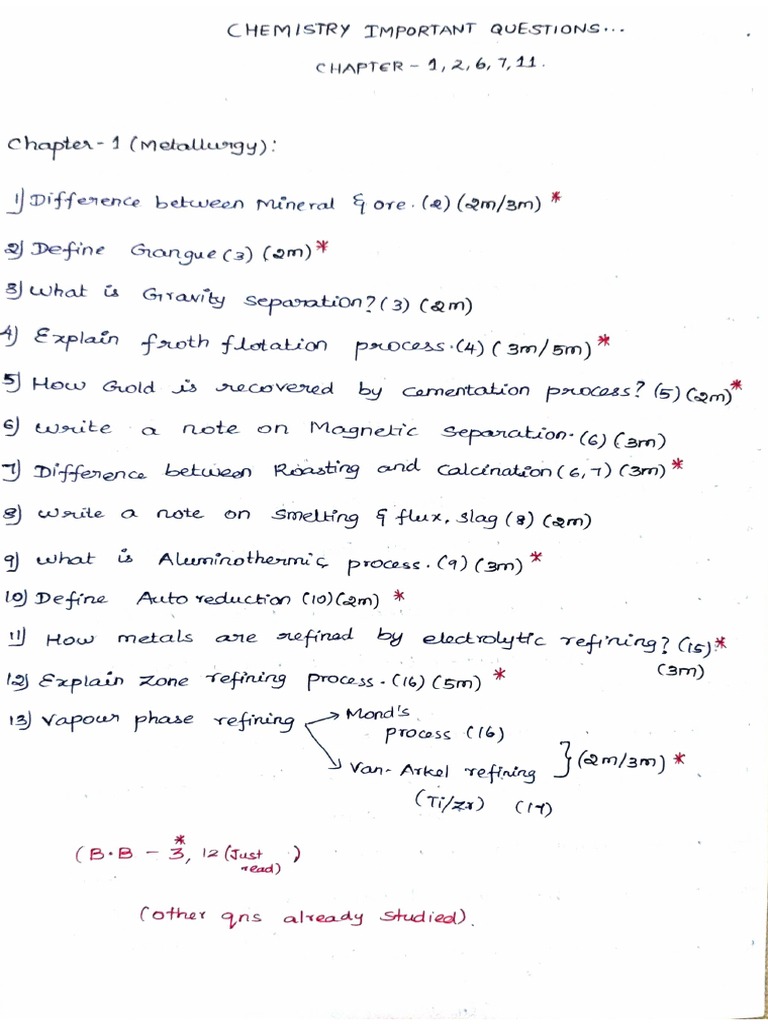 CHEMISTRY IMPORTANT QUESTIONS...
CHAPTER - 1, 2, 6, 7, 11.
Chapter - 1 (Metallurgy):
1) Difference between Mineral & ore. (2) (2m/3m) *
2) Define Gangue (3) (2m) *
3) What is Gravity separation? (3) (2m)
4) Explain froth flotation process. (4) (3m/5m) *
5) How Gold is recovered by cementation process? (5) (2m) *
6) Write a note on Magnetic separation. (6) (3m)
7) Difference between Roasting and Calcination (6,7) (3m) *
8) Write a note on Smelting & flux, slag (8) (2m)
9) What is Aluminothermic process. (9) (3m) *
10) Define Auto reduction (10) (2m) *
11) How metals are refined by electrolytic refining? (15) *
(3m)
12) Explain zone refining process. (16) (5m) *
13) Vapour phase refining → Mond's
process (16)
→ Van-Arkel refining } (2m/3m) *
(Ti/Zr) (17)
(B.B - 3*, 12 (Just
read) )
(other qns already studied).